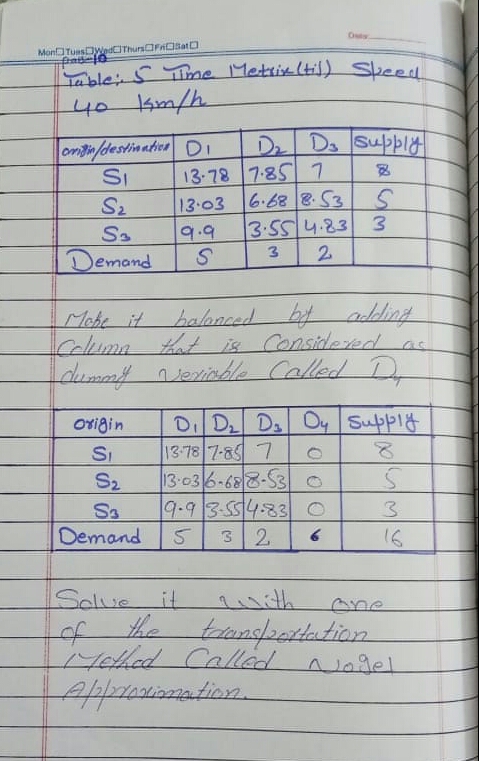 Date:
Mon☐Tues☐Wed☐Thurs☐Fri☐Sat☐
Table: 5 Time Metrix (tij) Speed
40 Km/h
origin/destination D1 D2 D3 Supply
S1 13.78 7.85 7 8
S2 13.03 6.68 8.53 5
S3 9.9 3.55 4.83 3
Demand 5 3 2
Make it balanced by adding
Column that is Considered as
dummy veriable Called D4
origin D1 D2 D3 D4 Supply
S1 13.78 7.85 7 0 8
S2 13.03 6.68 8.53 0 5
S3 9.9 3.55 4.83 0 3
Demand 5 3 2 6 16
Solve it with one
of the transportation
Method Called Vogel
Approximation.